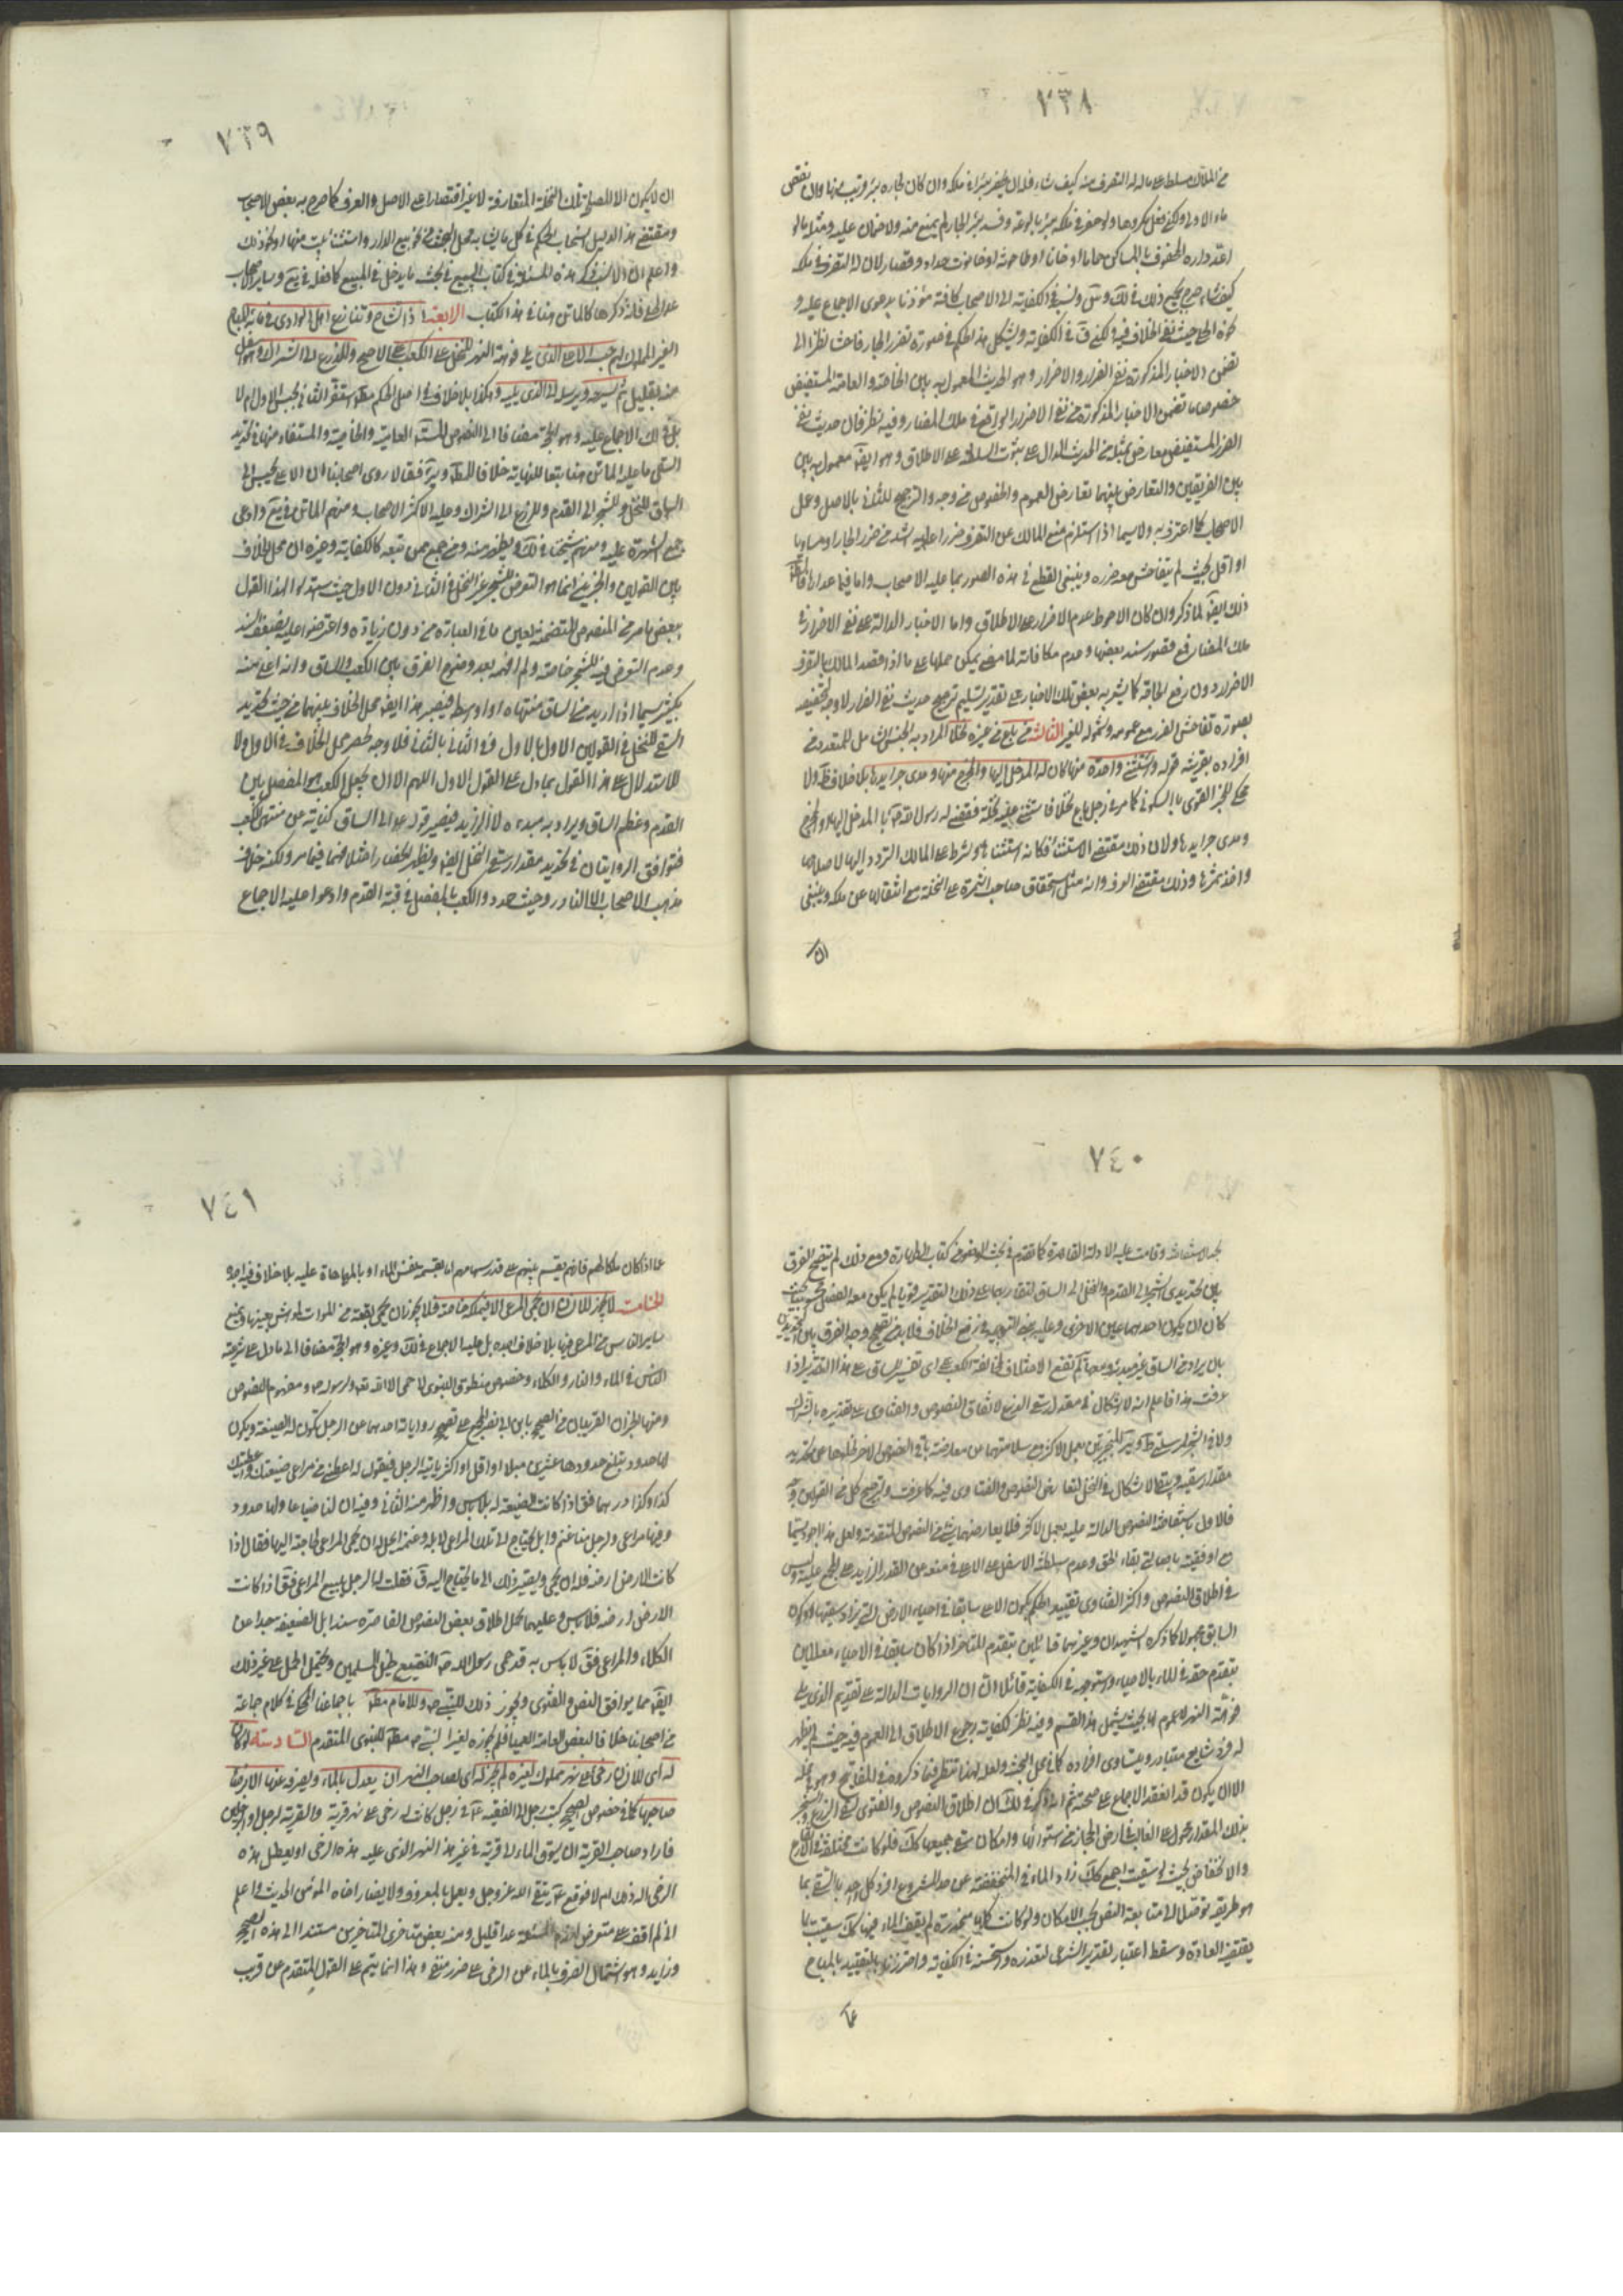 ٧٣٨
من الملاك مسلط على ماله له التصرف منه كيف شاء فله ان يحفر بئرا في ملكه وان كان لجاره بئر قريب منها وان نقص
ماء الاولى ولكن فعل مكروها ولو حفر في ملكه بئر بالوعة وفسد بئر الجار لم يمنع منه ولا ضمان عليه ومثله ما لو
اعد داره المحفوف بالمساكن حماما او خانا او طاحونة او حانوت حداد وقصار لان له التصرف في ملكه
كيف شاء صرح بجميع ذلك في لك وس ونسبه في الكفاية الى الاصحاب كافة مؤذنا بدعوى الاجماع عليه و
نحوه الحلي حيث نفى الخلاف فيه ولكن في الكفاية ويشكل هذا الحكم في صورة تضرر الجار فاحشا نظرا الى
تضمن الاخبار المذكورة نفى الضرر والاضرار وهو الحديث المعمول به بين الخاصة والعامة المستفيض
خصوصا ما تضمن الاخبار المذكورة من نفى الاضرار الواقع في ملك المضار وفيه نظر فان حديث نفى
الضرر المستفيض معارض بمثله من الحديث الدال على ثبوت السلطنة على الاطلاق وهو ايضا معمول به بين
بين الفريقين والتعارض بينهما تعارض العموم والخصوص من وجه والترجيح للثاني بالاصل وعمل
الاصحاب كما اعترف به ولا سيما اذا استلزم منع المالك عن التصرف ضررا عليه اشد من ضرر الجار او مساويا
او اقل بحيث لم يتفاحش معه ضرره وينبغي القطع في هذه الصور بما عليه الاصحاب واما فيما عداها
ذلك ايضا لما ذكر وان كان الاحوط عدم الاضرار على الاطلاق واما الاخبار الدالة على نفى الاضرار في
ملك المضار فمع قصور سند بعضها وعدم مكافاته لما مضى يمكن حملها على ما اذا قصد المالك بالتصرف
الاضرار دون رفع الحاجة كما يشعر به بعض تلك الاخبار على تقدير تسليم ترجيح حديث نفى الضرار لا وجه لتخصيصه
بصورة تفاحش الضرر مع عمومه وشموله للغير الثالثة من باع من غيره نخلا المراد به الجنس الشامل للمتعدد من
افراده بقرينة قوله واستثنى واحدة منها كان له المدخل اليها والمخرج منها ومدى جرايدها بلا خلاف ظ ولا
محكي للخبر القوي بالسكوني كالمرسل رجل باع نخلا فاستثنى عليه نخلة فقضى له رسول الله ص بالمدخل اليها والمخرج
ومدى جرايدها ولان ذلك مقتضى الاستثناء فكانه استثناها وشرط على المالك التردد اليها لاصلاحها
واخذ ثمرتها وذلك مقتضى العرف وانه مثل استحقاق صاحب الثمرة على النخلة مع انتقالها عن ملكه وينبغي
ان
٧٣٩
ان لا يكون الا للمصلحة تلك النخلة المتعارفة لا غير اقتصارا على الاصل والعرف كما صرح به بعض الاصحاب
ومقتضى هذا الدليل انسحاب الحكم في كل ما يشابه محل البحث من نحو بيع الدار واستثناء بيت منها او نحو ذلك
واعلم ان الانسب ذكر هذه المسئلة في كتاب البيع في بحث ما يدخل في المبيع كما فعله في يع وساير الاصحاب
عدا الحلي فانه ذكرها كالماتن هنا في هذا الكتاب الرابعة اذا تشاح وتنازع اهل الوادي في مائه المباح
الغير المملوك لهم حبسه الاعلى الذي يلي فوهة النهر للنخل على الكعب على الاصح وللزرع الى الشراك وهو اسفل
منه بقليل ثم يسرحه ويرسله الى الذي يليه وهكذا بلا خلاف في اصل الحكم مط استضر الثاني بحبس الاول ام لا
بل في لك الاجماع عليه وهو الحجة مضافا الى النصوص المستفيضة العامية والخاصية والمستفاد منها في تحديد
السقي ما عليه الماتن هنا تبعا للنهاية خلافا للمبسوط وئر فقالا روى اصحابنا ان الاعلى يحبس الى
الساق للنخل وللشجر الى القدم وللزرع الى الشراك وعليه اكثر الاصحاب ومنهم الماتن في يع وادعى
جمع الشهرة عليه ومنهم شيخنا في لك ويظهر منه ومن جميع ممن تبعه كالكفاية وغيره ان محل الخلاف
بين القولين والخبرين انما هو التعرض للشجر غير النخل في الثاني دون الاول حيث استدلوا لهذا القول
ببعض ما مر من النصوص المتضمنة لعين ما في العبارة من دون زيادة واعترضوا عليه بضعف السند
وعدم التعرض فيه للشجر خاصة ولم افهمه بعد وضوح الفرق بين الكعب والساق وانه اعلى منه
بكثير سيما اذا اريد من الساق منتهاه او اوسطه فيصير هذا ايضا محل الخلاف بينهما من حيث تحديد
السقي للنخل في القولين الاول بالاول وفي الثاني بالثاني فلا وجه لحصر محل الخلاف في الاول ولا
للاستدلال على هذا القول بما دل على القول الاول اللهم الا ان يجعل الكعب هو المفصل بين
القدم وعظم الساق ويراد به مبدءه لا ازيد فيصير قوله عه الى الساق كناية عن منتهى الكعب
فتوافق الروايتان في تحديد مقدار سقي النخل ايضا ويظهر انحصار اختلافهما فيما مر ولكنه خلاف
مذهب الاصحاب الا النادر وحيث حدد والكعب بالمفصل في قبة القدم وادعوا عليه الاجماع
٧٤٠
بحد الاستفاضة وقامت عليه الادلة القاهرة كما تقدم في بحث الوضوء من كتاب الطهارة ومع ذلك لم يتضح الفرق
بين تحديدي الشجر الى القدم والنخل الى الساق لتقاربهما على ذلك التقدير قريبا لم يكن معه الفصل محسوسا بحيث
كاد ان يكون احدهما عين الاخرى وعليه يتجه التوجيه في رفع الخلاف فلا بد من تصحيح وجه الفرق بين التحديدين
بان يراد من الساق غير مبدئه ومعه لم تقع الاختلاف لمخالفة الكعب على اي تفسير للساق على هذا التقدير اذا
عرفت هذا فاعلم انه لا اشكال في مقدار سقي الزرع لاتفاق النصوص والفتاوى على تقديره بالشراك
ولا في الشجر لمرسلتي ط وئر المنجبرتين بعمل الاكثر مع سلامتهما عن معارضة باقي النصوص الاخر لخلوها عن تحديد
مقدار سقيه ويبقى الاشكال في النخل لتعارض النصوص والفتاوى فيه كما عرفت ولترجيح كل من القولين وجه
فالاول باستفاضة النصوص الدالة عليه بعمل الاكثر فلا يعارضها شيء من النصوص المتقدمة ولعل هذا اجود سيما
مع اوفقيته باصالة بقاء الحق وعدم سلطنة الاسفل على الاعلى في منعه عن القدر الزايد على المجمع عليه وليس
في اطلاق النصوص واكثر الفتاوى تقييد الحكم بكون الاعلى سابقا في احياء الارض التي يراد سقيها او كون
السابق مجهولا كما ذكره الشهيدان وغيرهما قائلين بتقدم المتاخر اذا كان سابقا في الاحياء معللين
بتقدم حقه في الماء بالاحياء واستوجهه في الكفاية قائلا ان الروايات الدالة على تقديم الذي يلي
فوهة النهر لا عموم لها بحيث يشمل هذا القسم وفيه نظر لكفاية رجوع الاطلاق الى العموم فيه حيث لم يظهر
له فرد شايع متبادر ويتساوى افراده كما في محل البحث ولعله لهذا تنظر فيما ذكروه في المفاتيح وهو في محله
الا ان يكون قد انعقد الاجماع على صحته ثم انه ذكر في لك ان اطلاق النصوص والفتوى بسقي الزرع والشجر
بذلك المقدار محمول على الغالب في ارض الحجاز من استوائها وامكان سقي جميعها كك فلو كانت مختلفة في الارتفاع
والانخفاض بحيث لو سقيت اجمع كك زاد الماء في المنخفضة عن حد المشروع افرد كل واحد بالسقي بما
هو طريقه توصلا الى متابعة النص بحسب الامكان ولو كانت كلها منحدرة لم يقف الماء فيها كك سقيت بما
يقتضيه العادة وسقط اعتبار تقدير الشرعي لتعذره واستحسنه في الكفاية واحترز بالتقييد بالمباح
عما
٧٤١
عما اذا كان ملكا لهم فانه يقسم بينهم على قدر سهامهم اما بقسمة نفس الماء او بالمهاياة عليه بلا خلاف فيه اجده
الخامسة لا يجوز للانسان ان يحمي المرعى الا في ملكه خاصة فلا يجوز ان يحمي بقعة من الموات لمواشي بعينها ويمنع
ساير الناس من المرعى فيها بلا خلاف اجده بل عليه الاجماع في لك وغيره وهو الحجة مضافا الى ما دل على شركة
الناس في الماء والنار والكلاء وخصوص منطوق النبوي لا حمى الا لله تعه ولرسوله ص ومفهوم النصوص
ومنها الخبران القريبان من الصحيح بابن ابي نصر المجمع على تصحيح رواياته احدهما عن الرجل تكون له الضيعة ويكون
لها حدود تبلغ حدودها عشرين ميلا او اقل او اكثر ياتيه الرجل فيقول له اعطني من مراعي ضيعتك واعطيك
كذا وكذا درهما فق اذا كانت الضيعة له فلا باس واظهر منه الثاني وفيه ان لنا ضياعا ولها حدود
وفيها مراعي ولرجل منا غنم وابل يحتاج الى تلك المراعي لابله وغنمه ايحل له ان يحمي المراعي لحاجته اليها فقال اذا
كانت الارض ارضه فله ان يحمي ويصير ذلك الى ما يحتاج اليه ق فقلت له الرجل يبيع المراعي فق اذا كانت
الارض ارضه فلا باس وعليهما يحمل اطلاق بعض النصوص القاصرة سندا بل الضعيفة جدا عن
الكلاء والمراعي فق لا باس به قد حمى رسول الله ص النقيع لخيل المسلمين ويحتمل الحمل على غير ذلك
ايضا مما يوافق النص والفتوى ويجوز ذلك للنبي ص وللامام مط باجماعنا المحكي في كلام جماعة
من اصحابنا خلافا لبعض العامة العمياء فلم يجوزه لغير النبي ص مط للنبوي المتقدم السادسة لو كان
له اي للانسان رحى على نهر مملوك لغيره لم يجز له اي لصاحب النهر ان يعدل بالماء ويصرفه عنها الا برضاء
صاحبها كما في خصوص الصحيح كتب رجل الى الفقيه ع في رجل كانت له رحى على نهر قرية والقرية لرجل او لرجلين
فاراد صاحب القرية ان يسوق الماء الى قريته في غير هذا النهر الذي عليه هذه الرحى او يعطل هذه
الرحى اله ذلك ام لا فوقع ع يتقي الله عز وجل ويعمل بالمعروف ولا يضار اخاه المؤمن الحديث واعلم
اني لم اقف على متعرض لهذه المسئلة عدا قليل ومنه بعض متاخري المتاخرين مستندا الى هذه الصحيح
وزايد وهو اشتمال الصرف بالماء عن الرحى على ضرر منفي وهذا انما يتم على القول المتقدم عن قرب